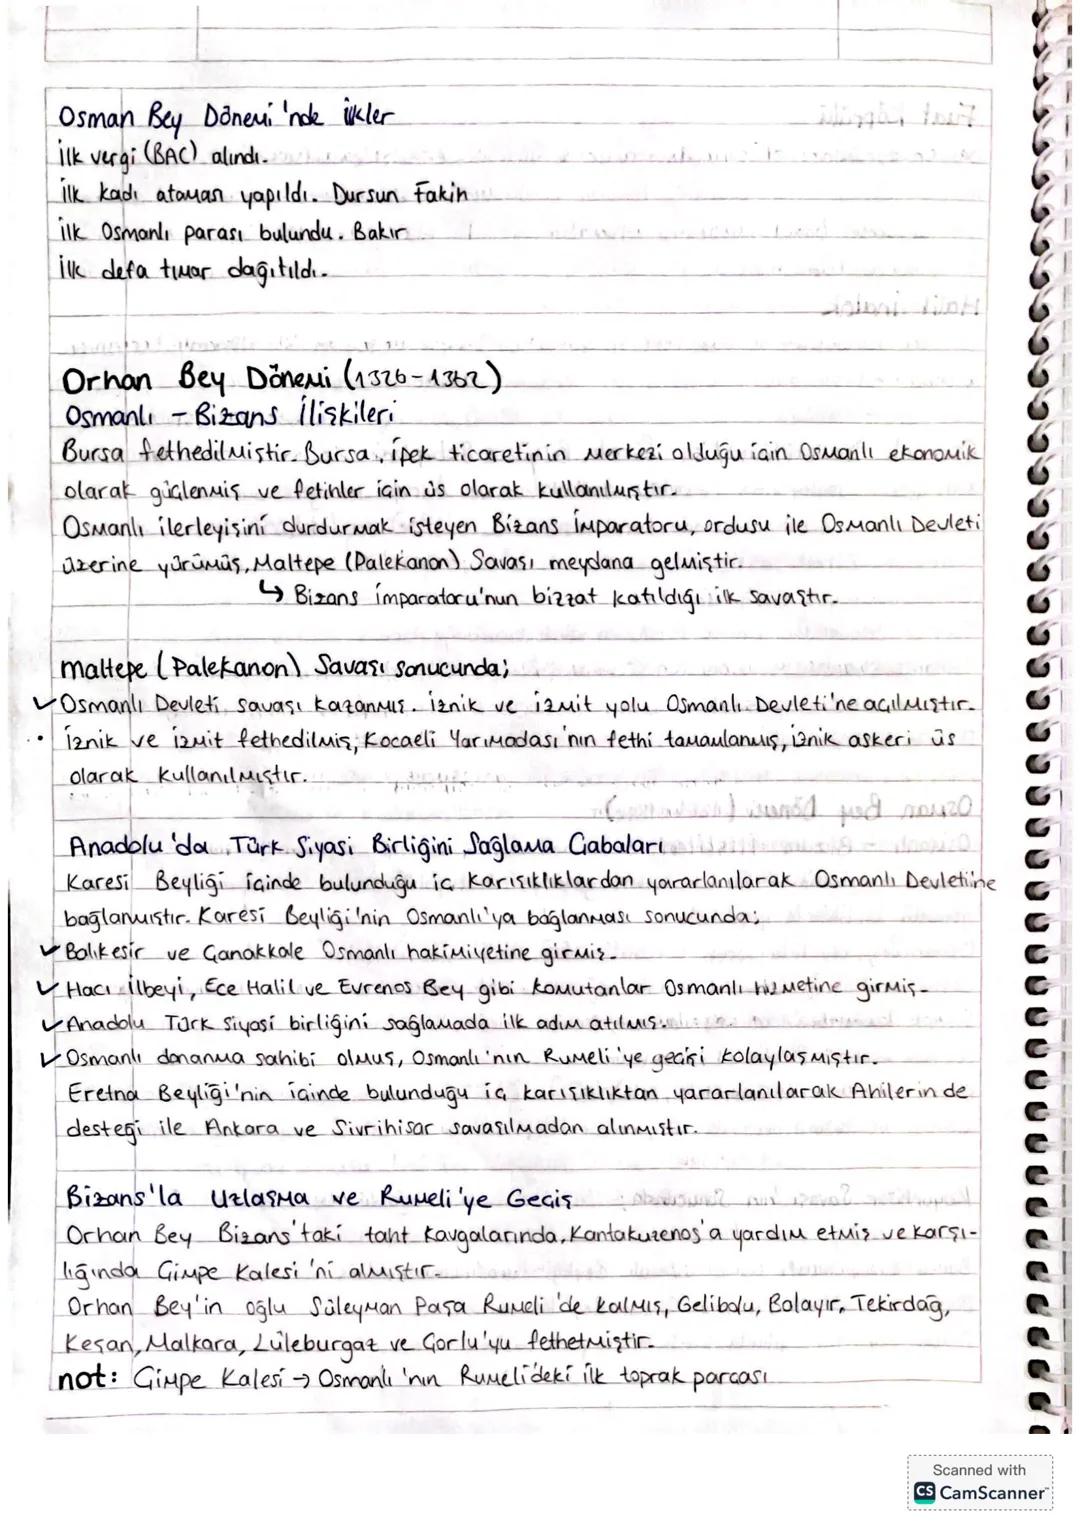 Osman Bey Dönemi'nde ilkler
İlk vergi (BAC) alındı.
İlk kadı ataması yapıldı. Dursun Fakih
İlk Osmanlı parası bulundu. Bakır
İlk defa tımar dağıtıldı.
Orhan Bey Dönemi (1326-1362)
Osmanlı - Bizans İlişkileri
Bursa fethedilmiştir. Bursa, ipek ticaretinin merkezi olduğu için Osmanlı ekonomik
olarak güçlenmiş ve fetihler için üs olarak kullanılmıştır.
Osmanlı ilerleyişini durdurmak isteyen Bizans İmparatoru, ordusu ile Osmanlı Devleti
üzerine yürümüş, Maltepe (Palekanon) Savaşı meydana gelmiştir.
↳ Bizans imparatoru'nun bizzat katıldığı ilk savaştır.
maltepe (Palekanon) Savaşı sonucunda;
✓Osmanlı Devleti savaşı kazanmış. İznik ve izmit yolu Osmanlı Devleti'ne açılmıştır.
• iznik ve izmit fethedilmiş, Kocaeli Yarımadası'nın fethi tamamlanmış, iznik askeri üs
olarak kullanılmıştır.
Anadolu'da Türk Siyasi Birliğini Sağlama Çabaları
Karesi Beyliği içinde bulunduğu iç karışıklıklardan yararlanılarak Osmanlı Devleti'ne
bağlanmıştır. Karesi Beyliği'nin Osmanlı'ya bağlanması sonucunda;
✓Balıkesir ve Çanakkale Osmanlı hakimiyetine girmiş.
✓Hacı İlbeyi, Ece Halil ve Evrenos Bey gibi komutanlar Osmanlı hizmetine girmiş.
✓Anadolu Türk Siyasi birliğini sağlamada ilk adım atılmış.
✓Osmanlı donanma sahibi olmuş, Osmanlı'nın Rumeli'ye geçişi kolaylaşmıştır.
Eretna Beyliği'nin içinde bulunduğu iç karışıklıktan yararlanılarak Ahilerin de
desteği ile Ankara ve Sivrihisar savaşılmadan alınmıştır.
Bizans'la Uzlaşma ve Rumeli'ye Geçiş
Orhan Bey Bizans'taki taht kavgalarında, Kantakuzenos'a yardım etmiş ve karşı-
lığında Çimpe Kalesi'ni almıştır.
Orhan Bey'in oğlu Süleyman Paşa Rumeli'de kalmış, Gelibolu, Bolayır, Tekirdağ,
Keşan, Malkara, Lüleburgaz ve Çorlu'yu fethetmiştir.
not: Çimpe Kalesi → Osmanlı'nın Rumeli'deki ilk toprak parçası
Scanned with
CS CamScanner